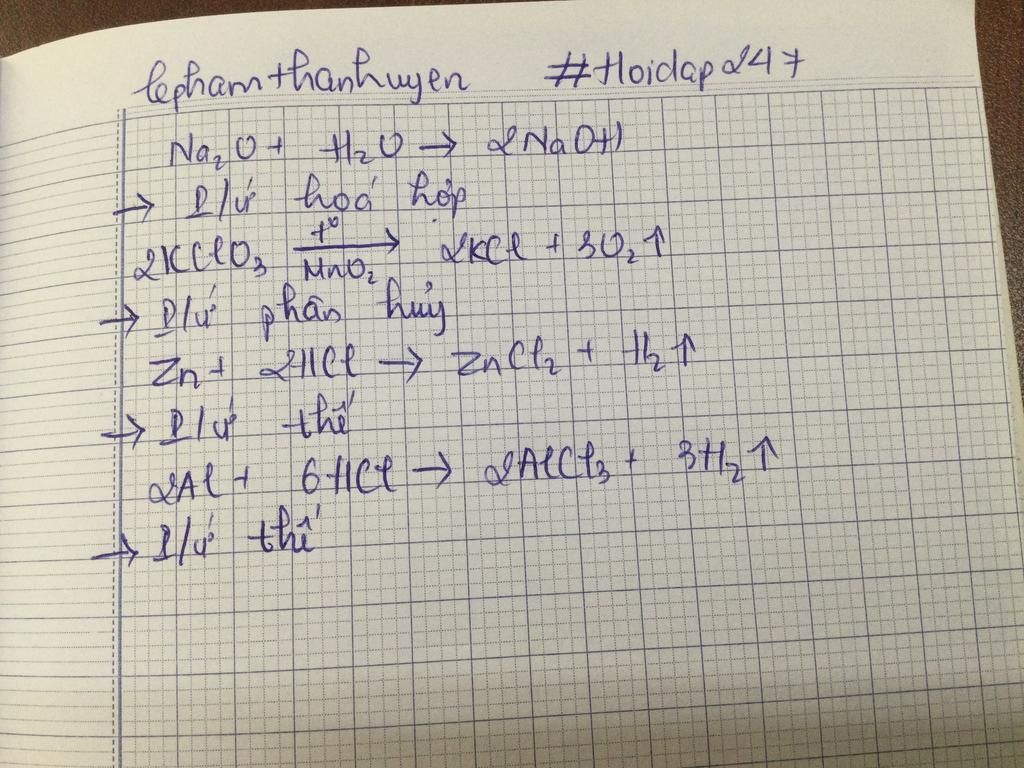 lephamthanhuyen #Hoidap247
Na₂O + H₂O → 2NaOH
→ P/ứ hoá hợp
2KClO₃ —t°/MnO₂→ 2KCl + 3O₂↑
→ P/ứ phân hủy
Zn + 2HCl → ZnCl₂ + H₂↑
→ P/ứ thế
2Al + 6HCl → 2AlCl₃ + 3H₂↑
→ P/ứ thế